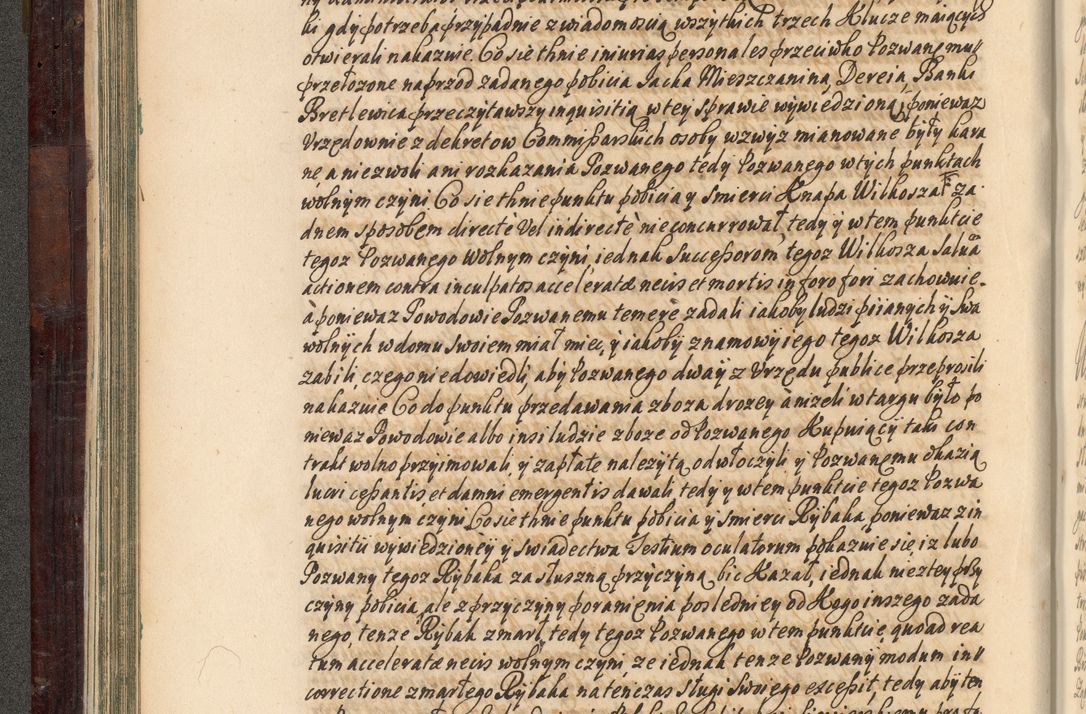 ki gdy potrzeba przypadnie z wiadomoscią wszytkich trzech Klucze maiących
otwierali nakazuie. Co sie thnie iniurias personales przeciwko Pozwanemu
przełozone naprzod zadanego pobicia Jacka Mieszczanina, Dereia, Banki
Bretlewica przeczytawszy inquisitią w tey sprawie wywiedzioną, poniewaz
Urzędownie z dekretow Commissarskich osoby wzwyz mianowane były kara
ne a nie z woli ani rozkazania Pozwanego tedy Pozwanego w tych punktach
wolnym czyni Co sie thnie punktu pobicia y smierci Knapa Wilkosza za
dnem sposobem directè vel indirectè nie concurrował, tedy y w tem punktcie
tegoz Pozwanego wolnym czyni, iednak Successorom tegoz Wilkosza salua
actionem contra inculpatos acceleratæ necis et mortis in foro fori zachowuie.
à poniewaz Powodowie Pozwanemu temerè zadali iakoby ludzi piianych y swa
wolnych w domu swoiem miał miec, y iakoby z namowy iego tegoz Wilkosza
zabili, czego nie dowiedli, aby Pozwanego dway z Urzędu publice przeprosili
nakazuie Co do punktu przedawania zboza drozey à nizeli w targu było po
niewaz Powodowie albo insi ludzie zboze od Pozwanego Kupuiący taki con
trakt wolno przyimowali, y zapłatę nalezytą odwłoczyli y Pozwanemu okazią
lucri cessantis et damni emergentis dawali tedy y w tem punktcie tegoz Pozwa
nego wolnym czyni Co sie thnie punktu pobicia y smierci Rybaka, poniewaz z in
quisitii wywiedzioney y swiadectwa Testium oculatorum pokazuie się iz lubo
Pozwany tegoz Rybaka za słuszną przyczyną bic Kazał, iednak nie z tey przy
czyny pobicia, ale z przyczyny poranienia posledniey od Kogo inszego zada
nego, tenze Rybak zmarł, tedy tegoz Pozwanego w tem punktcie, quoad rea
tum acceleratæ necis wolnym czyni, ze iednak tenze Pozwany modum in
correctione zmarłego Rybaka na tenczas sługi swoiego excessit, tedy aby ten